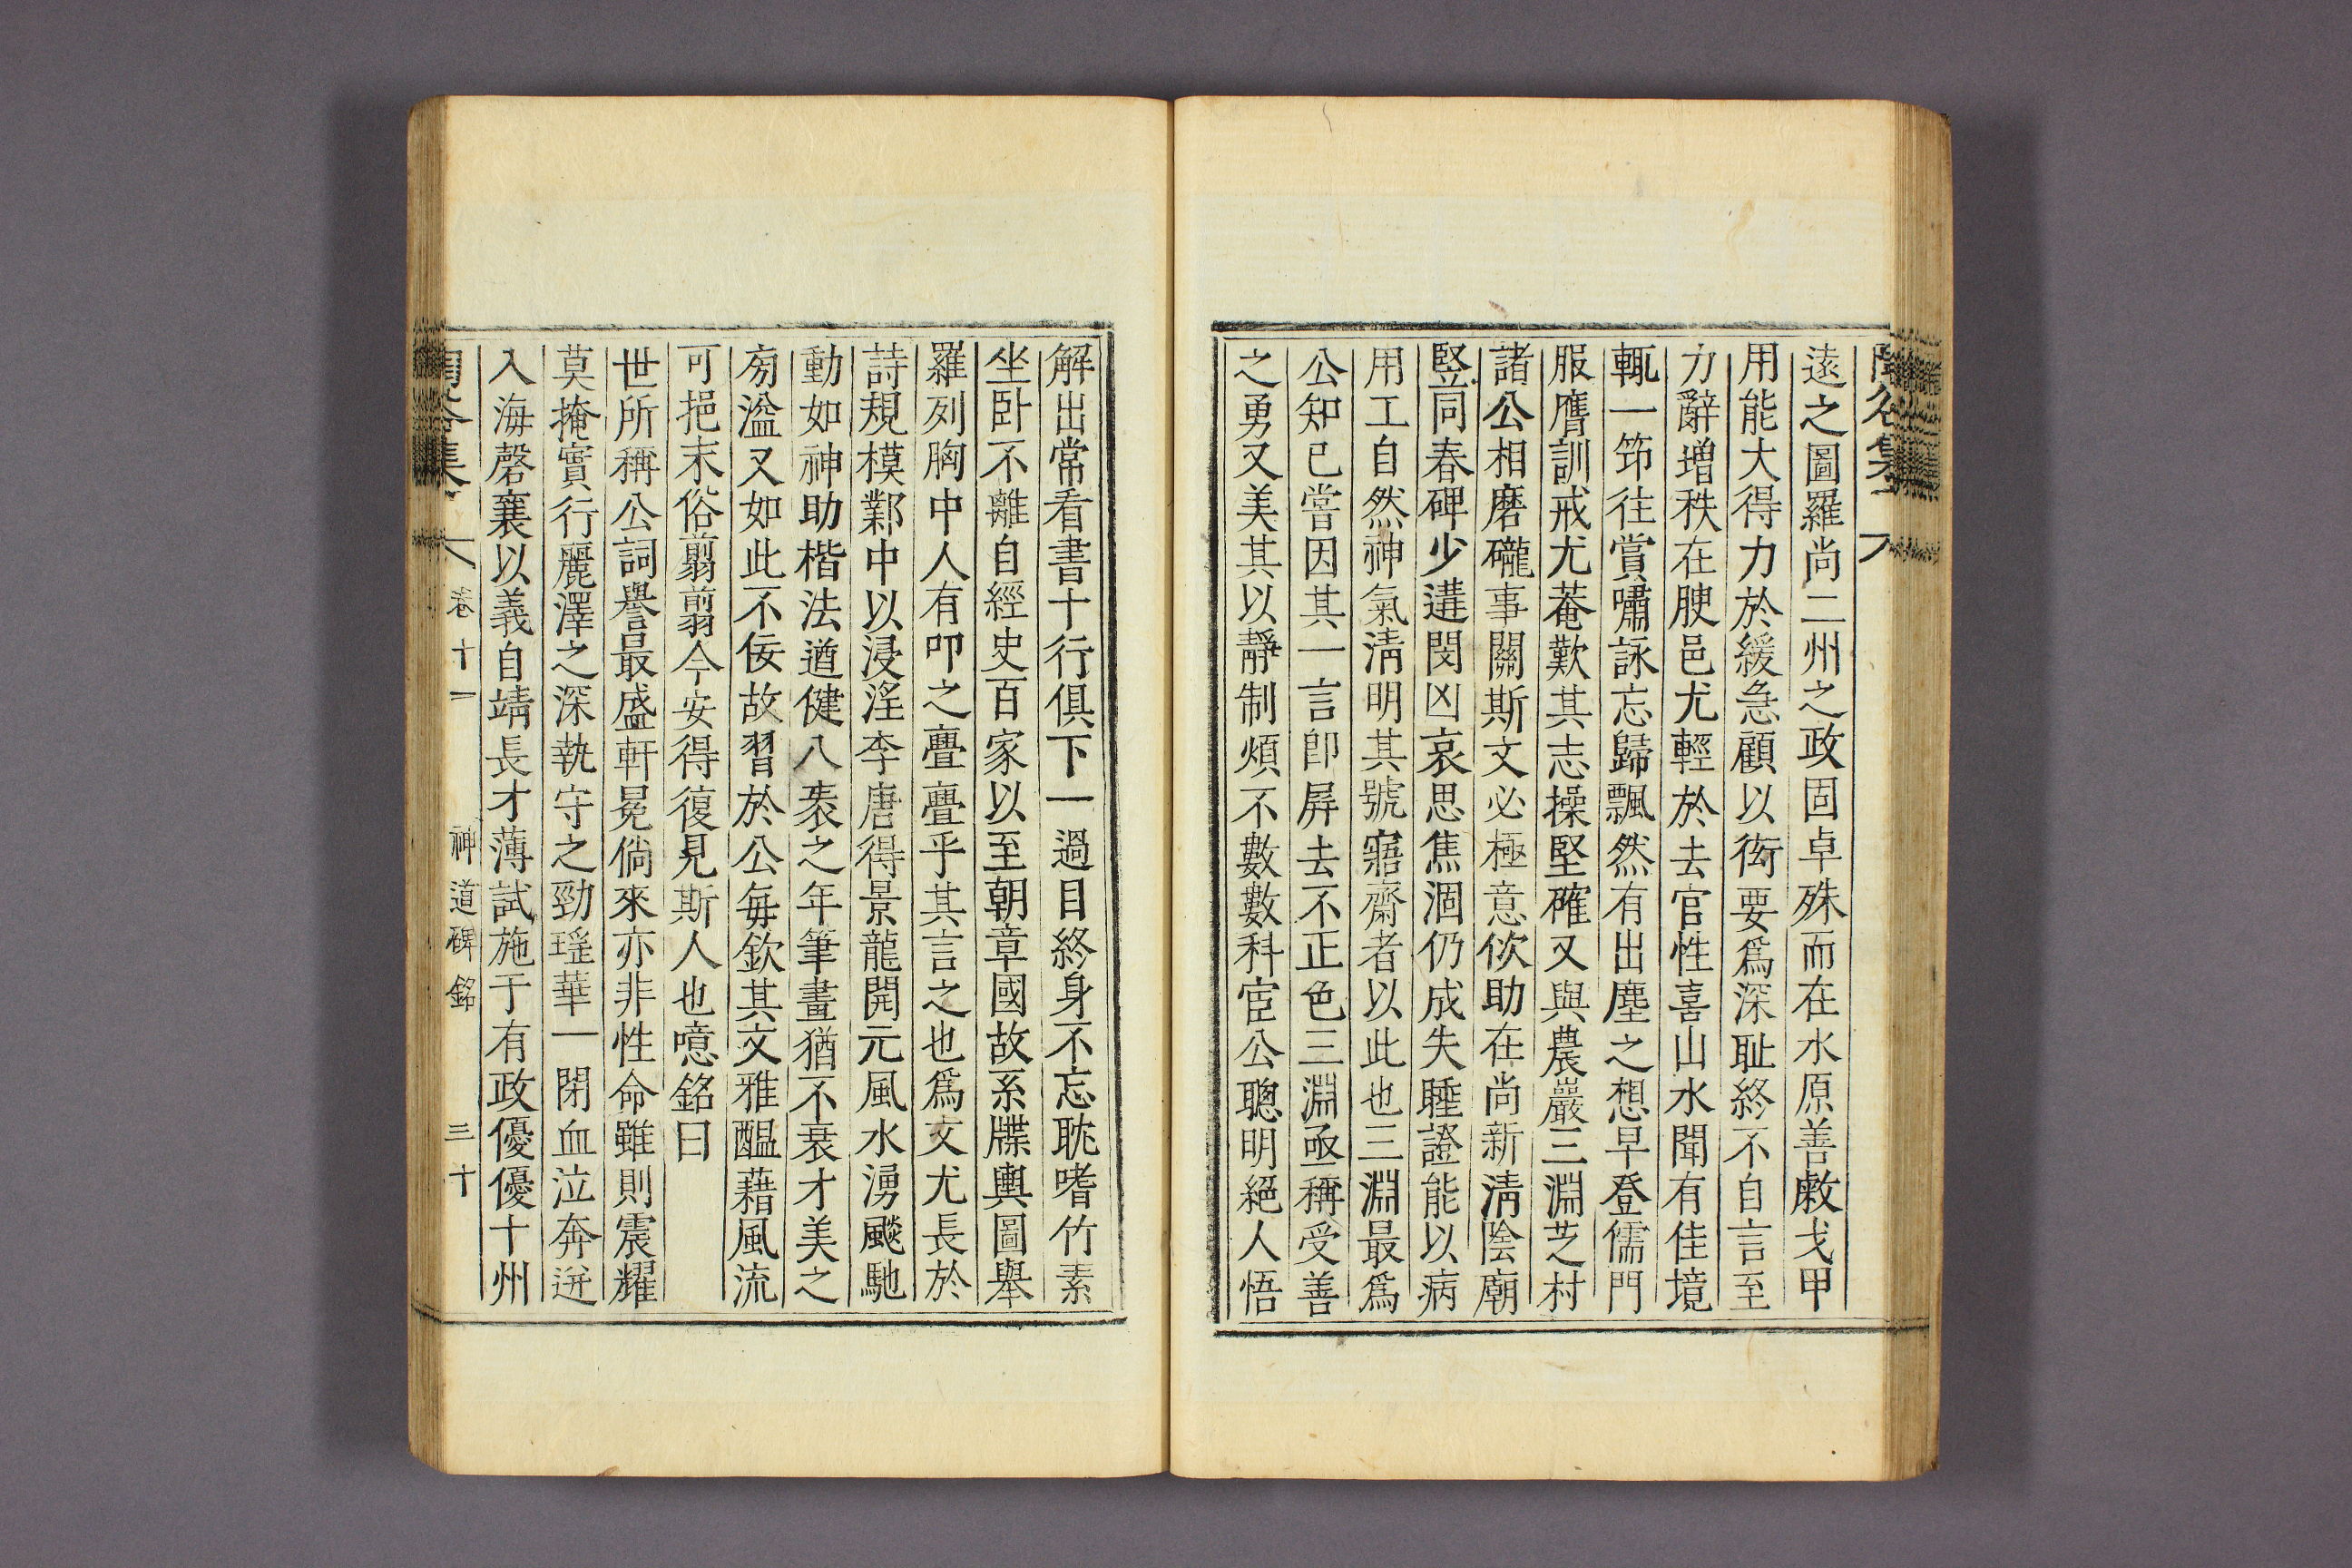 遠之圖羅尚二州之政固卓殊而在水原善敹戈甲
用能大得力於緩急顧以衒要爲深耻終不自言至
力辭增秩在腴邑尤輕於去官性喜山水聞有佳境
輒一笻往賞嘯詠忘歸飄然有出塵之想早登儒門
服膺訓戒尤菴歎其志操堅確又與農巖三淵芝村
諸公相磨礲事關斯文必極意佽助在尚新淸陰廟
竪同春碑少遘閔凶哀思焦涸仍成失睡證能以病
用工自然神氣淸明其號寤齋者以此也三淵最爲
公知已嘗因其一言卽屛去不正色三淵亟稱受善
之勇又美其以靜制煩不數數科宦公聰明絕人悟
解出常看書十行俱下一過目終身不忘耽嗜竹素
坐卧不離自經史百家以至朝章國故系牒輿圖舉
羅列胸中人有叩之亹亹乎其言之也爲文尤長於
詩規模鄴中以浸淫李唐得景龍開元風水湧颷馳
動如神助楷法遒健八袠之年筆畫猶不衰才美之
旁溢又如此不佞故習於公每欽其文雅醞藉風流
可挹末俗翦翦今安得復見斯人也噫銘曰
世所稱公詞譽最盛軒冕倘來亦非性命雖則震耀
莫掩實行麗澤之深執守之勁瑤華一閉血泣奔迸
入海磬襄以義自靖長才薄試施于有政優優十州
陶谷集 卷十一 神道碑銘 三十